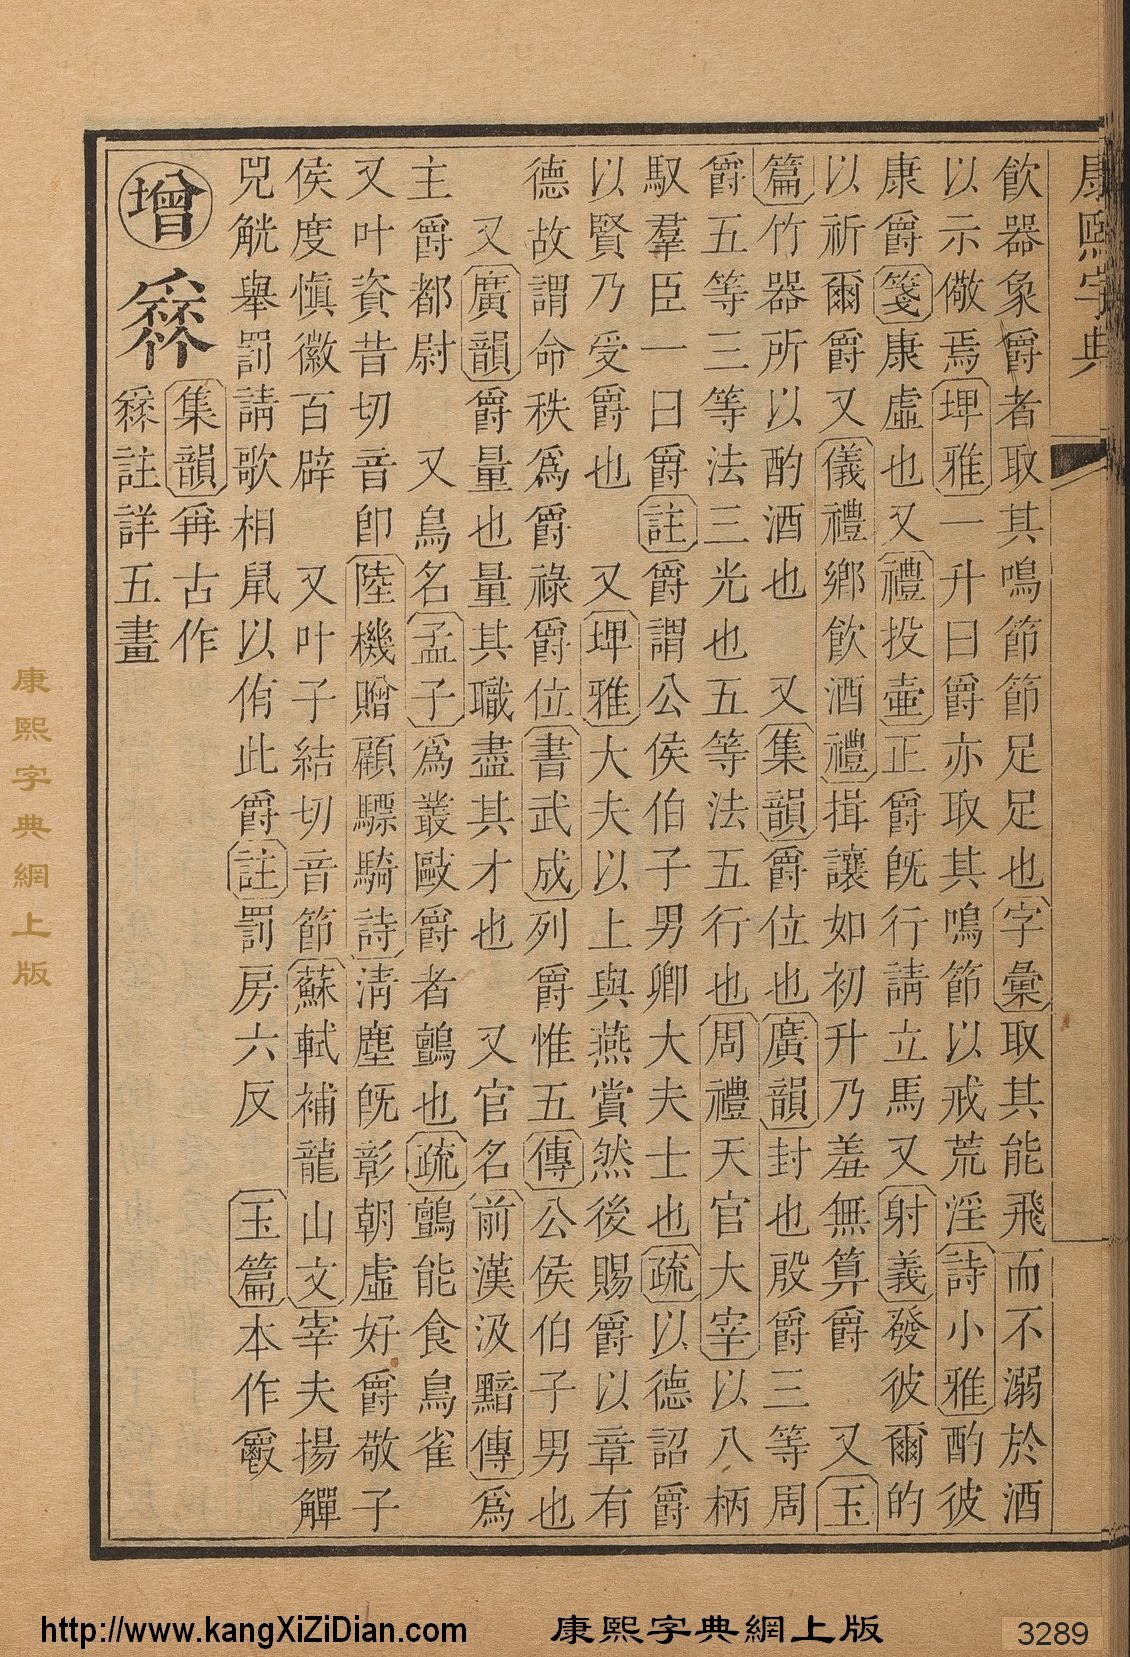 康熙字典
飮器象爵者取其鳴節節足足也字彙取其能飛而不溺於酒
以示儆焉埤雅一升曰爵亦取其鳴節以戒荒淫詩小雅酌彼
康爵箋康虛也又禮投壷正爵旣行請立馬又射義發彼爾的
以祈爾爵又儀禮鄕飮酒禮揖讓如初升乃羞無算爵 又玉
篇竹器所以酌酒也 又集韻爵位也廣韻封也殷爵三等周
爵五等三等法三光也五等法五行也周禮天官大宰以八柄
馭羣臣一曰爵註爵謂公侯伯子男卿大夫士也疏以德詔爵
以賢乃受爵也 又埤雅大夫以上與燕賞然後賜爵以章有
德故謂命秩爲爵祿爵位書武成列爵惟五傳公侯伯子男也
又廣韻爵量也量其職盡其才也 又官名前漢汲黯傳爲
主爵都尉 又鳥名孟子爲叢敺爵者鸇也疏鸇能食鳥雀
又叶資昔切音卽陸機贈顧驃騎詩淸塵旣彰朝虛好爵敬子
侯度愼徽百辟 又叶子結切音節蘇軾補龍山文宰夫揚觶
兕觥舉罰請歌相鼠以侑此爵註罰房六反 玉篇本作𩰥
增 𤕨 集韻爯古作
𤔌註詳五畫
康熙字典網上版
http://www.kangXiZiDian.com 康熙字典網上版 3289